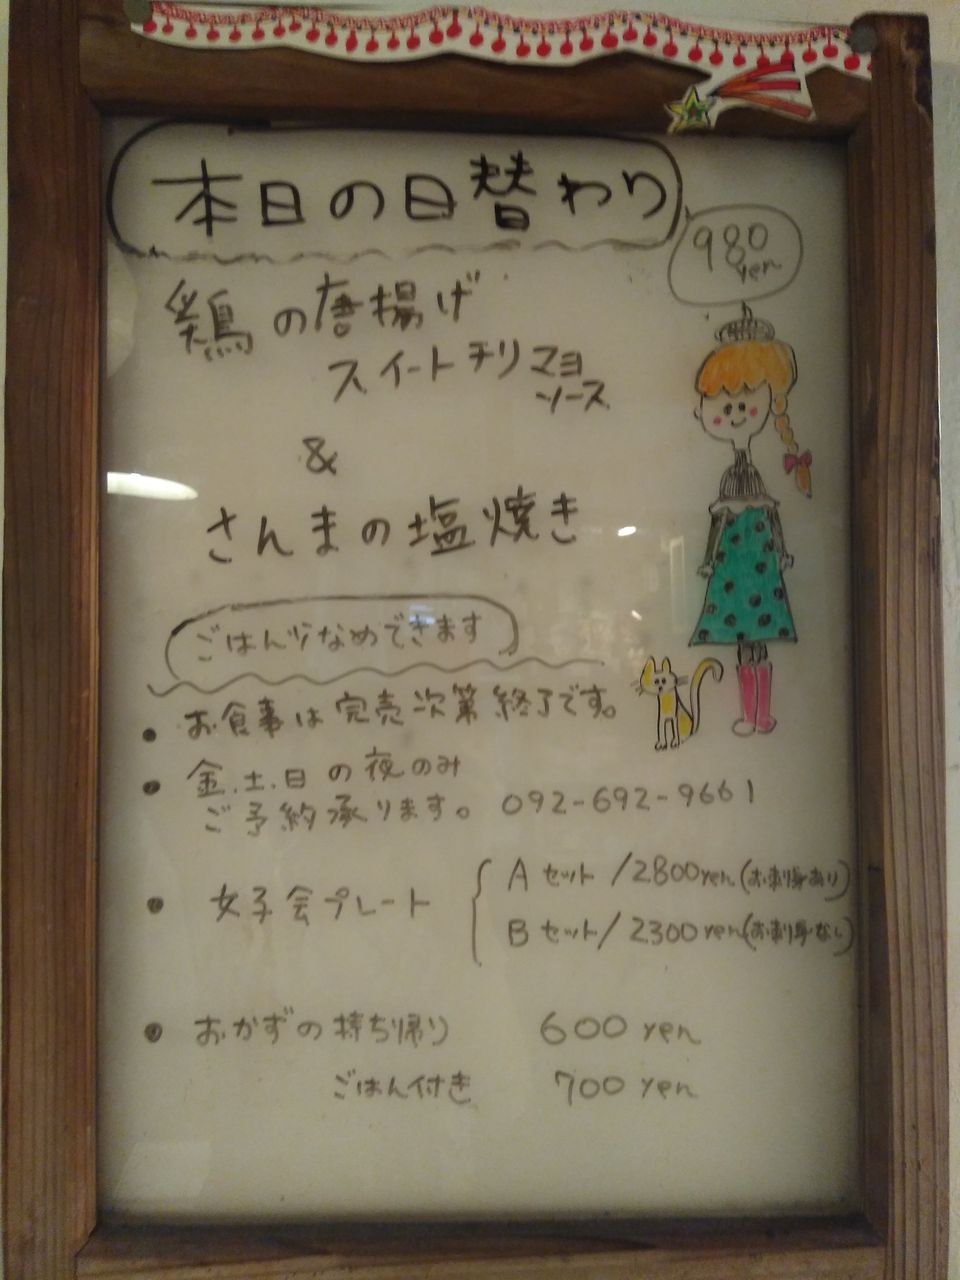 本日の日替わり
980
yen
鶏の唐揚げ
スイートチリマヨ
ソース
&
さんまの塩焼き
ごはん少なめできます
・お食事は完売次第終了です。
・金.土.日の夜のみ
ご予約承ります。 092-692-9661
・女子会プレート
Aセット/2800yen(お刺身あり)
Bセット/2300yen(お刺身なし)
・おかずの持ち帰り 600yen
ごはん付き 700yen